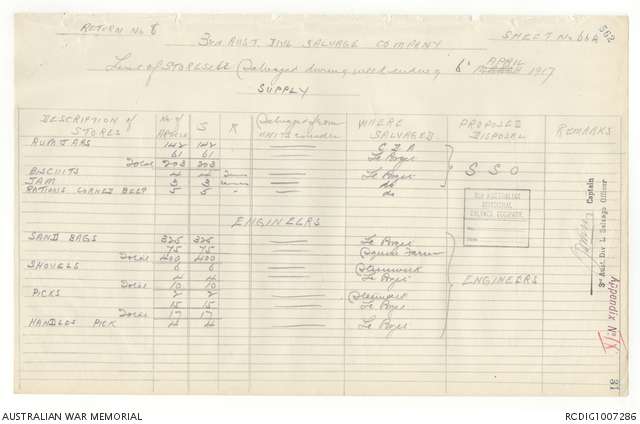 RETURN No 8
3RD AUST. DIVL SALVAGE COMPANY
SHEET No 66A
562
List of STORES etc Salvaged during week ending 6th APRIL 1917
SUPPLY
DESCRIPTION of STORES No of Articles S R Salvaged from UNITS WHERE SALVAGED PROPOSED DISPOSAL REMARKS
RUM JARS 142 142
61 61 Le Bizet
Total 203 203
BISCUITS 4 4 Le Bizet S S O
JAM 3 3 do
RATIONS CORNED BEEF 5 5 do
ENGINEERS
SAND BAGS 325 325 Le Bizet
75 75
Total 400 400
SHOVELS 6 6
4 4 Le Bizet
Total 10 10 ENGINEERS
PICKS 2 2
15 15 Le Bizet
Total 17 17
HANDLES PICK 4 4 Le Bizet
3RD AUSTRALIAN
DIVISIONAL
SALVAGE COMPANY
Captain
3rd Aust. Div l. Salvage Officer
Appendix No IX
31
AUSTRALIAN WAR MEMORIAL
RCDIG1007286